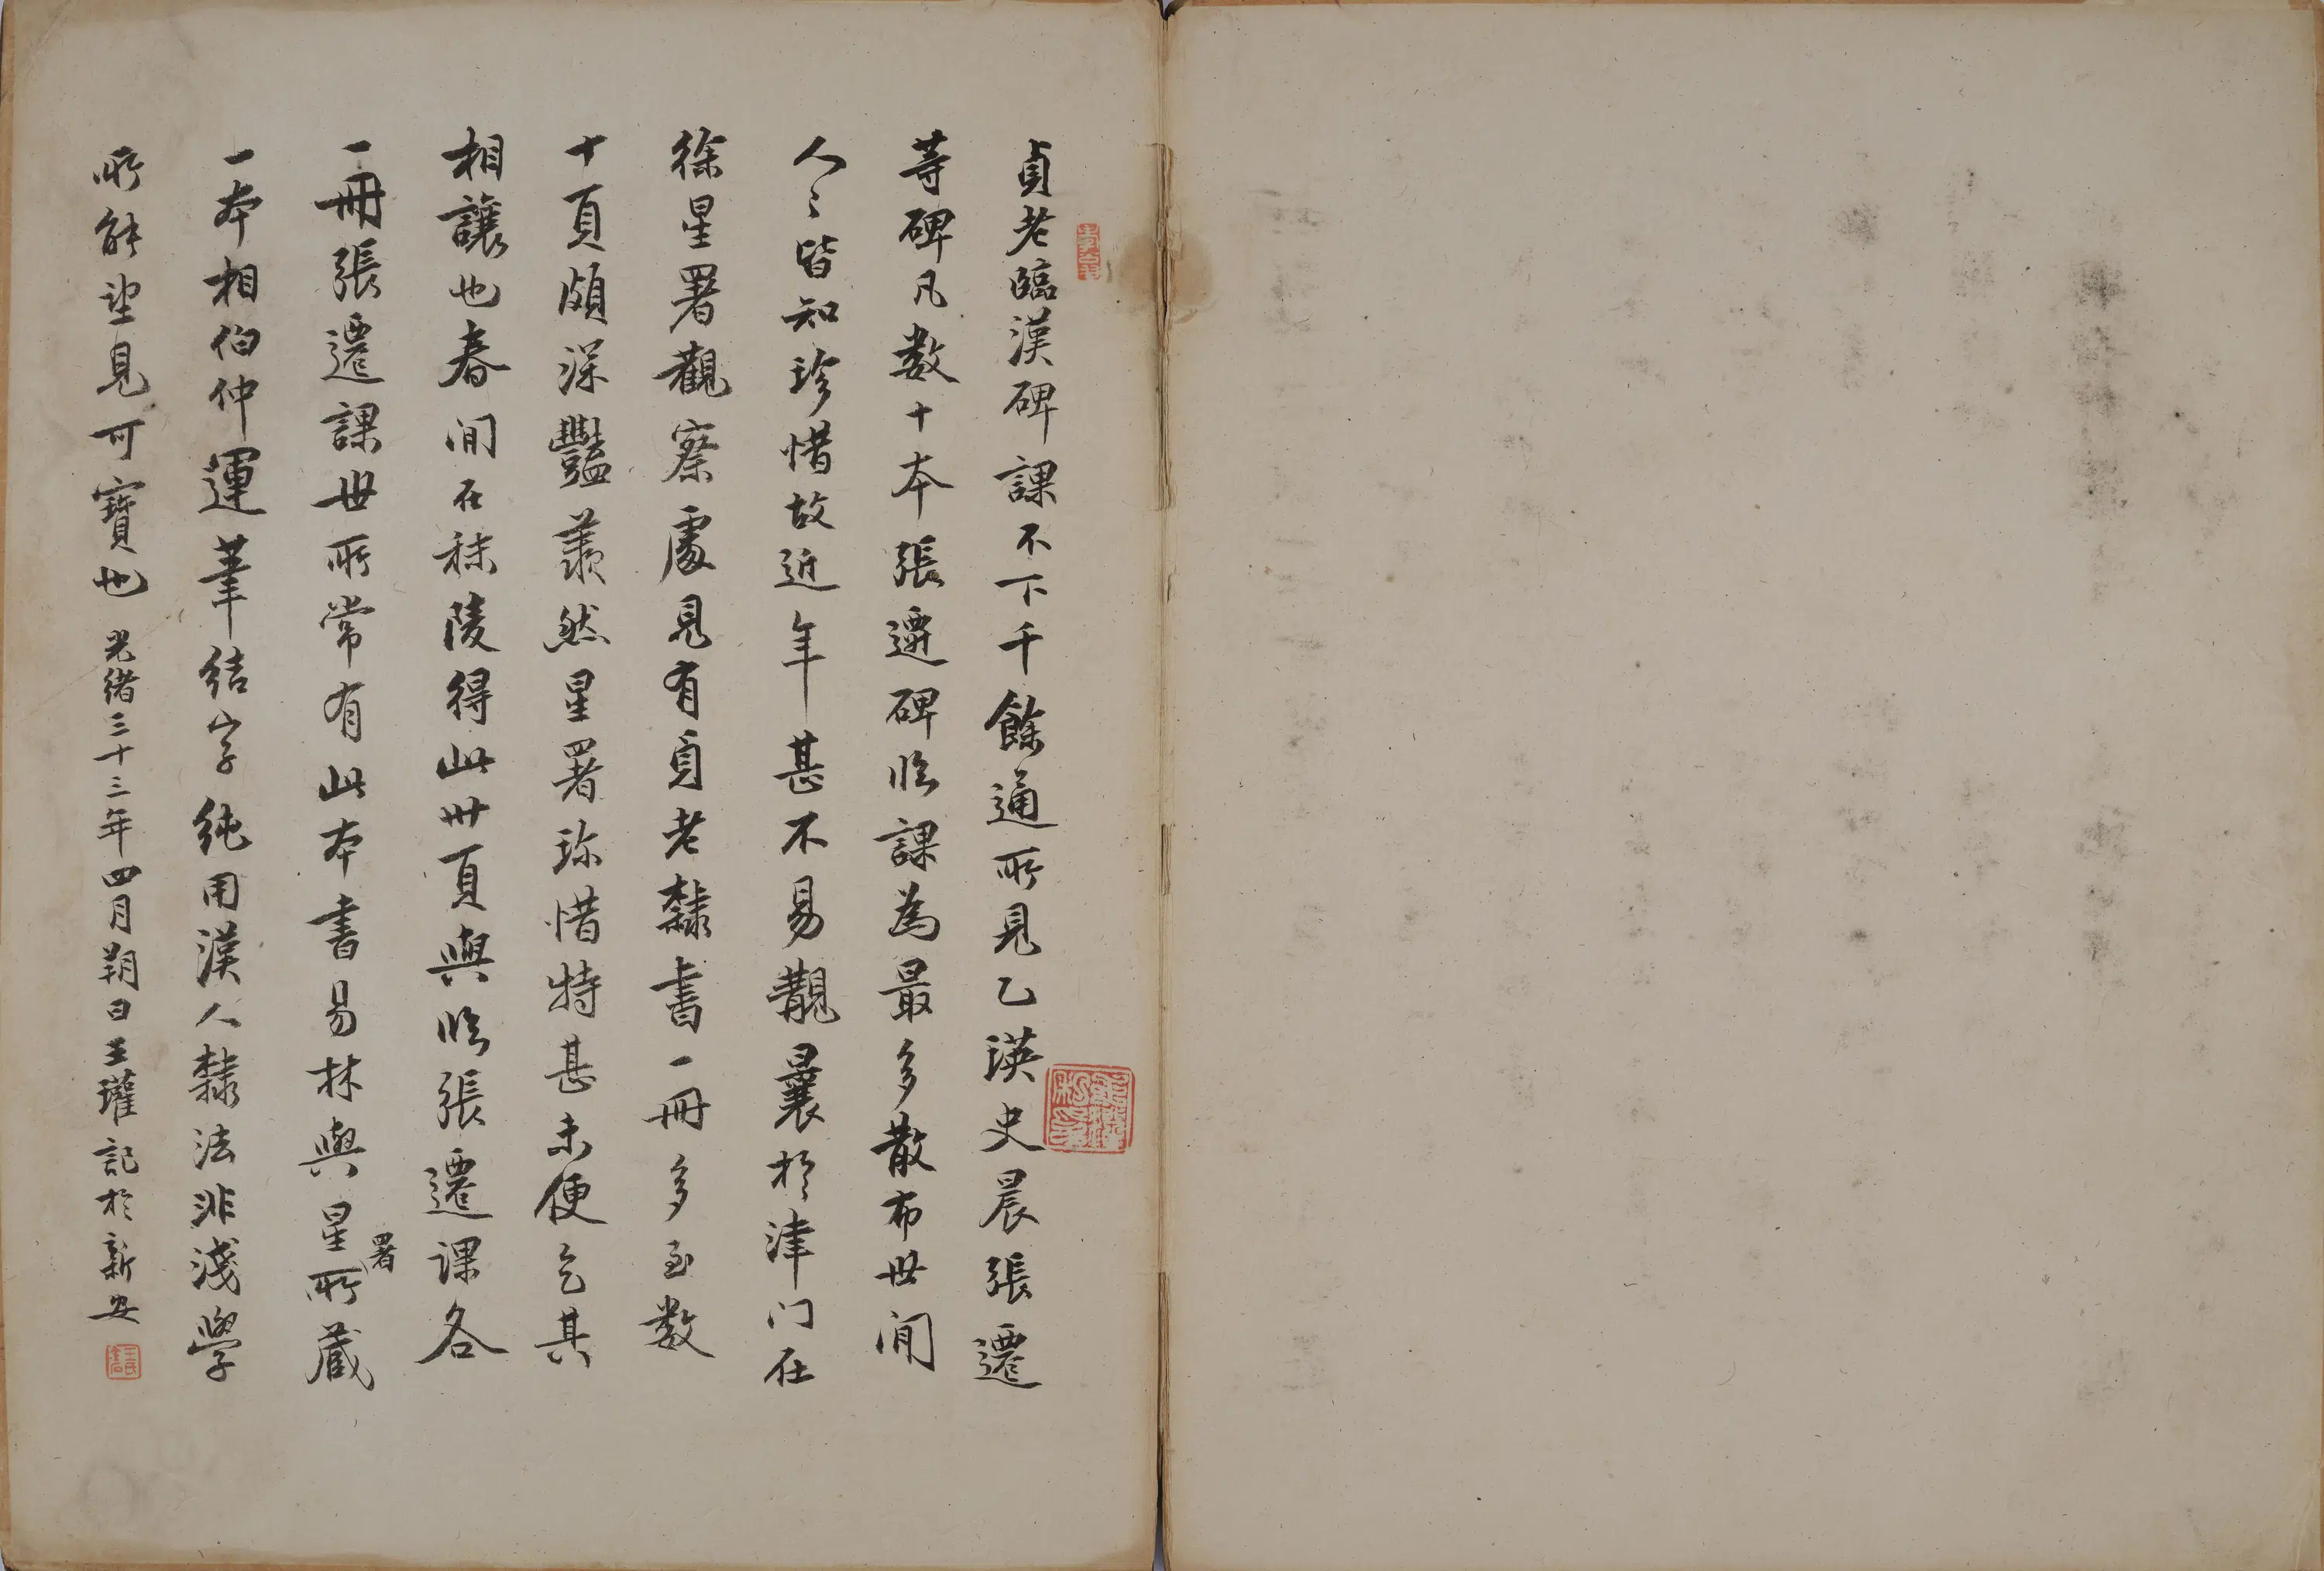 貞老臨漢碑課不下千餘通所見乙瑛史晨張遷
等碑凡數十本張遷碑臨課為最多散布世間
人々皆知珍惜故近年甚不易覯曩於津门在
徐星署觀察處見有貞老隸書一冊多至数
十頁頗深豔羨然星署珎惜特甚未便乞其
相讓也春间在秣陵得此卅頁與臨張遷課各
一冊張遷課世所常有此本書易林與星署所蔵
一本相伯仲運筆結字純用漢人隸法非淺學
所能望見可寶也 光緒三十三年四月朔日王瓘記於新安